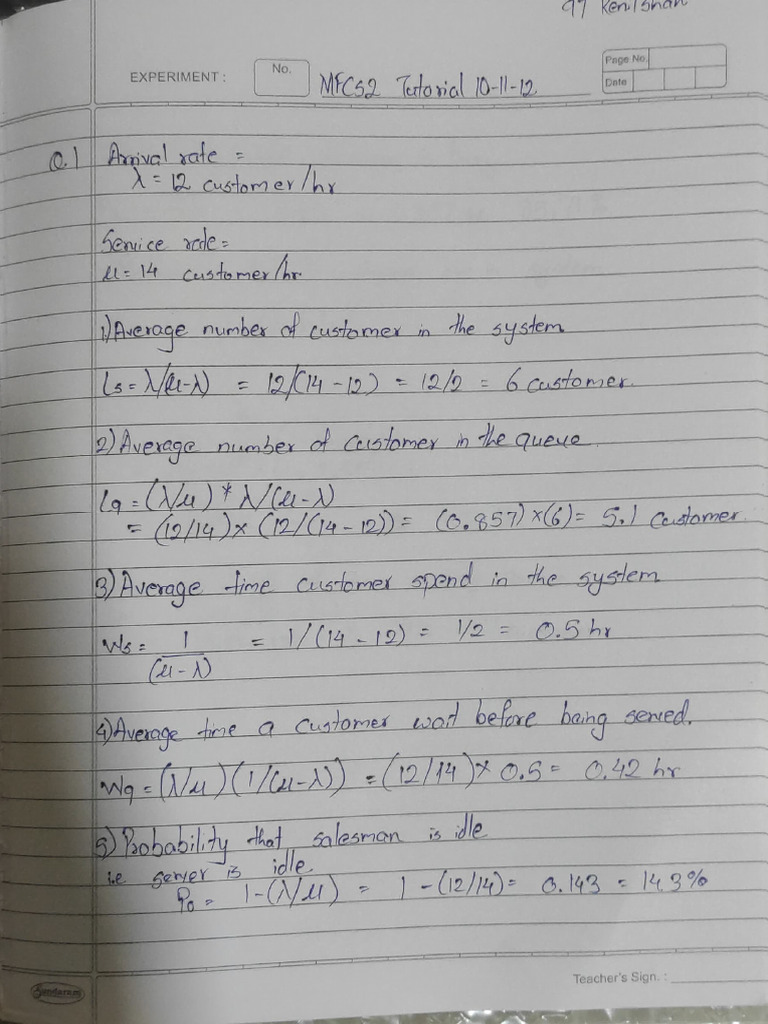 97 Kenil Shah
EXPERIMENT : No. MFCS2 Tutorial 10-11-12 Page No.
Date
Q.1 Arrival rate =
λ = 12 customer/hr
Service rate =
μ = 14 customer/hr
1) Average number of customer in the system
Ls = λ/(μ-λ) = 12/(14-12) = 12/2 = 6 customer.
2) Average number of customer in the queue
Lq = (λ/μ) * λ/(μ-λ)
= (12/14) × (12/(14-12)) = (0.857) × (6) = 5.1 customer.
3) Average time customer spend in the system
Ws = 1/(μ-λ) = 1/(14-12) = 1/2 = 0.5 hr
4) Average time a customer wait before being served.
Wq = (λ/μ) (1/(μ-λ)) = (12/14) × 0.5 = 0.42 hr
5) Probability that salesman is idle
i.e server is idle.
P0 = 1-(λ/μ) = 1-(12/14) = 0.143 = 14.3%
Teacher's Sign. :
Sundaram